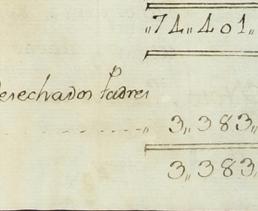 „74„401„
desechados Padres
„ 3„383„
3„383„